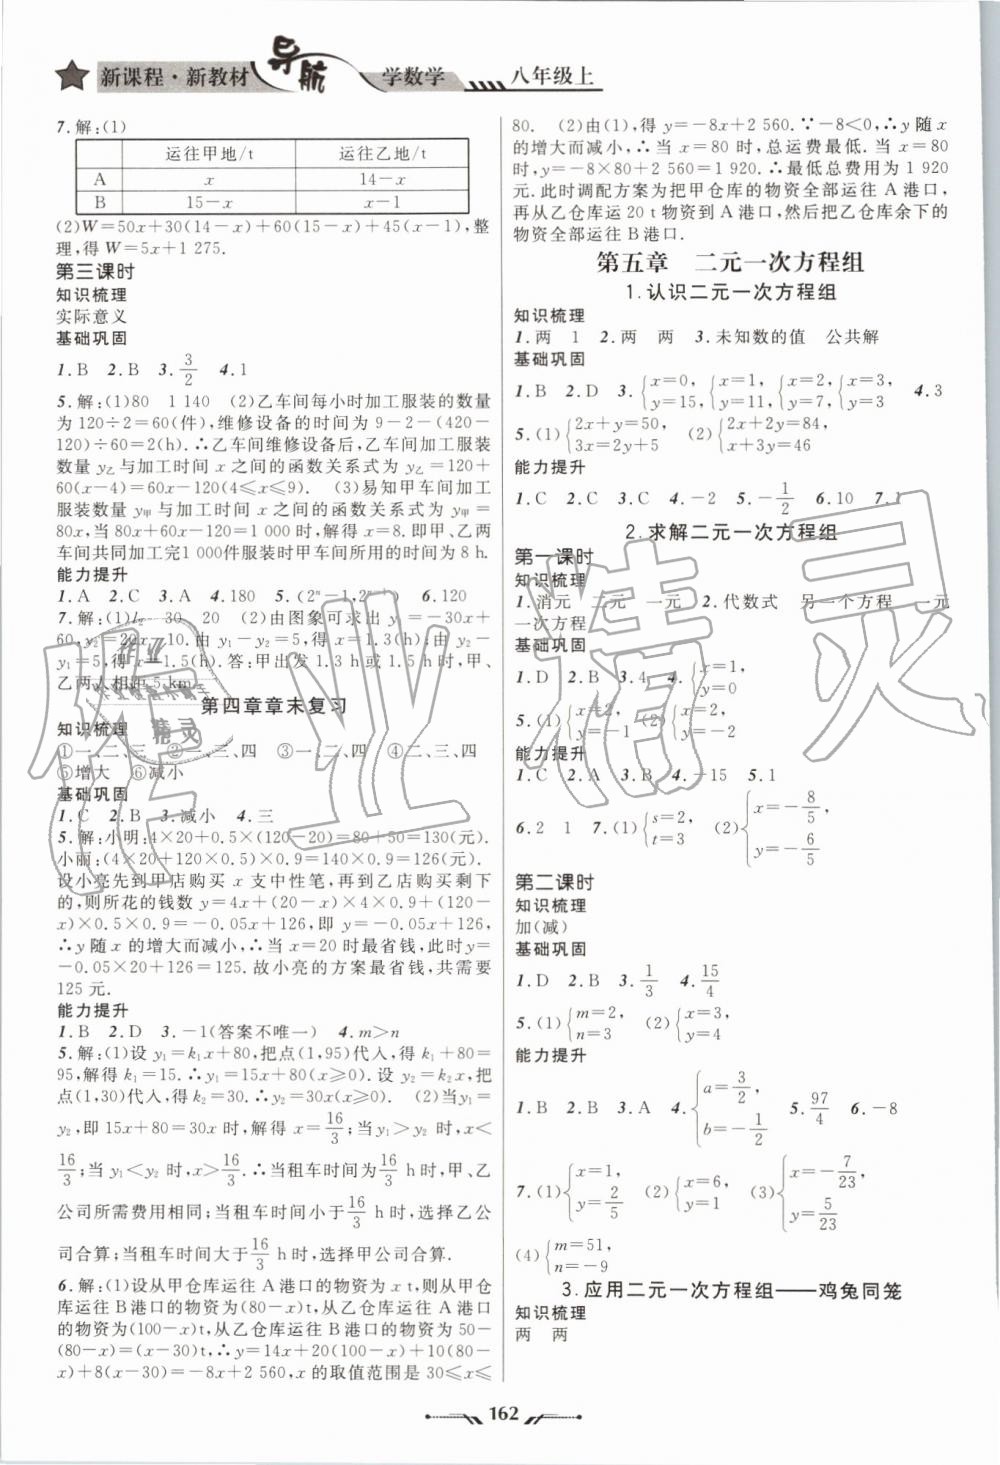 新课程·新教材 导航 学数学 八年级上
7.解:(1)
运往甲地/t 运往乙地/t
A x 14-x
B 15-x x-1
(2)W=50x+30(14-x)+60(15-x)+45(x-1),整
理,得 W=5x+1 275.
第三课时
知识梳理
实际意义
基础巩固
1.B 2.B 3.3/2 4.1
5.解:(1)80 1 140 (2)乙车间每小时加工服装的数量
为 120÷2=60(件),维修设备的时间为 9-2-(420-
120)÷60=2(h).∴乙车间维修设备后,乙车间加工服装
数量 y乙与加工时间 x 之间的函数关系式为 y乙=120+
60(x-4)=60x-120(4≤x≤9). (3)易知甲车间加工
服装数量 y甲与加工时间 x 之间的函数关系式为 y甲=
80x,当 80x+60x-120=1 000 时,解得 x=8.即甲、乙两
车间共同加工完1 000件服装时甲车间所用的时间为 8 h.
能力提升
1.A 2.C 3.A 4.180 5.(2ⁿ-1,2ⁿ⁻¹) 6.120
7.解:(1)l₂ 30 20 (2)由图象可求出 y₁=-30x+
60,y₂=20x-10.由 y₁-y₂=5,得 x=1.3(h);由 y₂-
y₁=5,得 x=1.5(h).答:甲出发 1.3 h 或 1.5 h 时,甲、
乙两人相距 5 km.
第四章章末复习
知识梳理
①一、二、三 ②一、三、四 ③一、二、四 ④二、三、四
⑤增大 ⑥减小
基础巩固
1.C 2.B 3.减小 4.三
5.解:小明:4×20+0.5×(120-20)=80+50=130(元).
小丽:(4×20+120×0.5)×0.9=140×0.9=126(元).
设小亮先到甲店购买 x 支中性笔,再到乙店购买剩下
的,则所花的钱数 y=4x+(20-x)×4×0.9+(120-
x)×0.5×0.9=-0.05x+126,即 y=-0.05x+126,
∴y 随 x 的增大而减小,∴当 x=20 时最省钱,此时 y=
-0.05×20+126=125.故小亮的方案最省钱,共需要
125 元.
能力提升
1.B 2.D 3.-1(答案不唯一) 4.m>n
5.解:(1)设 y₁=k₁x+80,把点(1,95)代入,得 k₁+80=
95,解得 k₁=15.∴y₁=15x+80(x≥0).设 y₂=k₂x,把
点(1,30)代入,得 k₂=30.∴y₂=30x(x≥0). (2)当y₁=
y₂,即 15x+80=30x 时,解得 x=16/3;当 y₁>y₂ 时,x<
16/3;当 y₁<y₂ 时,x>16/3.∴当租车时间为16/3 h 时,甲、乙
公司所需费用相同;当租车时间小于16/3 h 时,选择乙公
司合算;当租车时间大于16/3 h 时,选择甲公司合算.
6.解:(1)设从甲仓库运往 A 港口的物资为 x t,则从甲仓
库运往 B港口的物资为(80-x)t,从乙仓库运往 A 港口
的物资为(100-x)t,从乙仓库运往 B 港口的物资为 50-
(80-x)=(x-30)t.∴y=14x+20(100-x)+10(80-
x)+8(x-30)=-8x+2 560,x 的取值范围是 30≤x≤
80. (2)由(1),得 y=-8x+2 560.∵-8<0,∴y 随 x
的增大而减小,∴当 x=80 时,总运费最低.当 x=80
时,y=-8×80+2 560=1 920.∴最低总费用为 1 920
元.此时调配方案为把甲仓库的物资全部运往 A 港口,
再从乙仓库运20 t物资到 A 港口,然后把乙仓库余下的
物资全部运往 B 港口.
第五章 二元一次方程组
1.认识二元一次方程组
知识梳理
1.两 1 2.两 两 3.未知数的值 公共解
基础巩固
1.B 2.D 3.{x=0, y=15, {x=1, y=11, {x=2, y=7, {x=3, y=3 4.3
5.(1){2x+y=50, 3x=2y+5 (2){2x+2y=84, x+3y=46
能力提升
1.C 2.C 3.C 4.-2 5.-1/2 6.10 7.1
2.求解二元一次方程组
第一课时
知识梳理
1.消元 二元 一元 2.代数式 另一个方程 一元
一次方程
基础巩固
1.D 2.B 3.4 4.{x=1, y=2
5.(1){x=2, y=-1 (2){x=0, y=-2
能力提升
1.C 2.A 3.B 4.-15 5.1
6.2 1 7.(1){s=2, t=3 (2){x=-8/5, y=-6/5
第二课时
知识梳理
加(减)
基础巩固
1.D 2.B 3.1/3 4.15/4
5.(1){m=2, n=3 (2){x=3, y=4
能力提升
1.B 2.B 3.A 4.{a=3/2, b=-1/2 5.97/4 6.-8
7.(1){x=1, y=2/5 (2){x=6, y=1 (3){x=-7/23, y=5/23
(4){m=51, n=-9
3.应用二元一次方程组——鸡兔同笼
知识梳理
两 两
162
作业精灵
作业
精灵